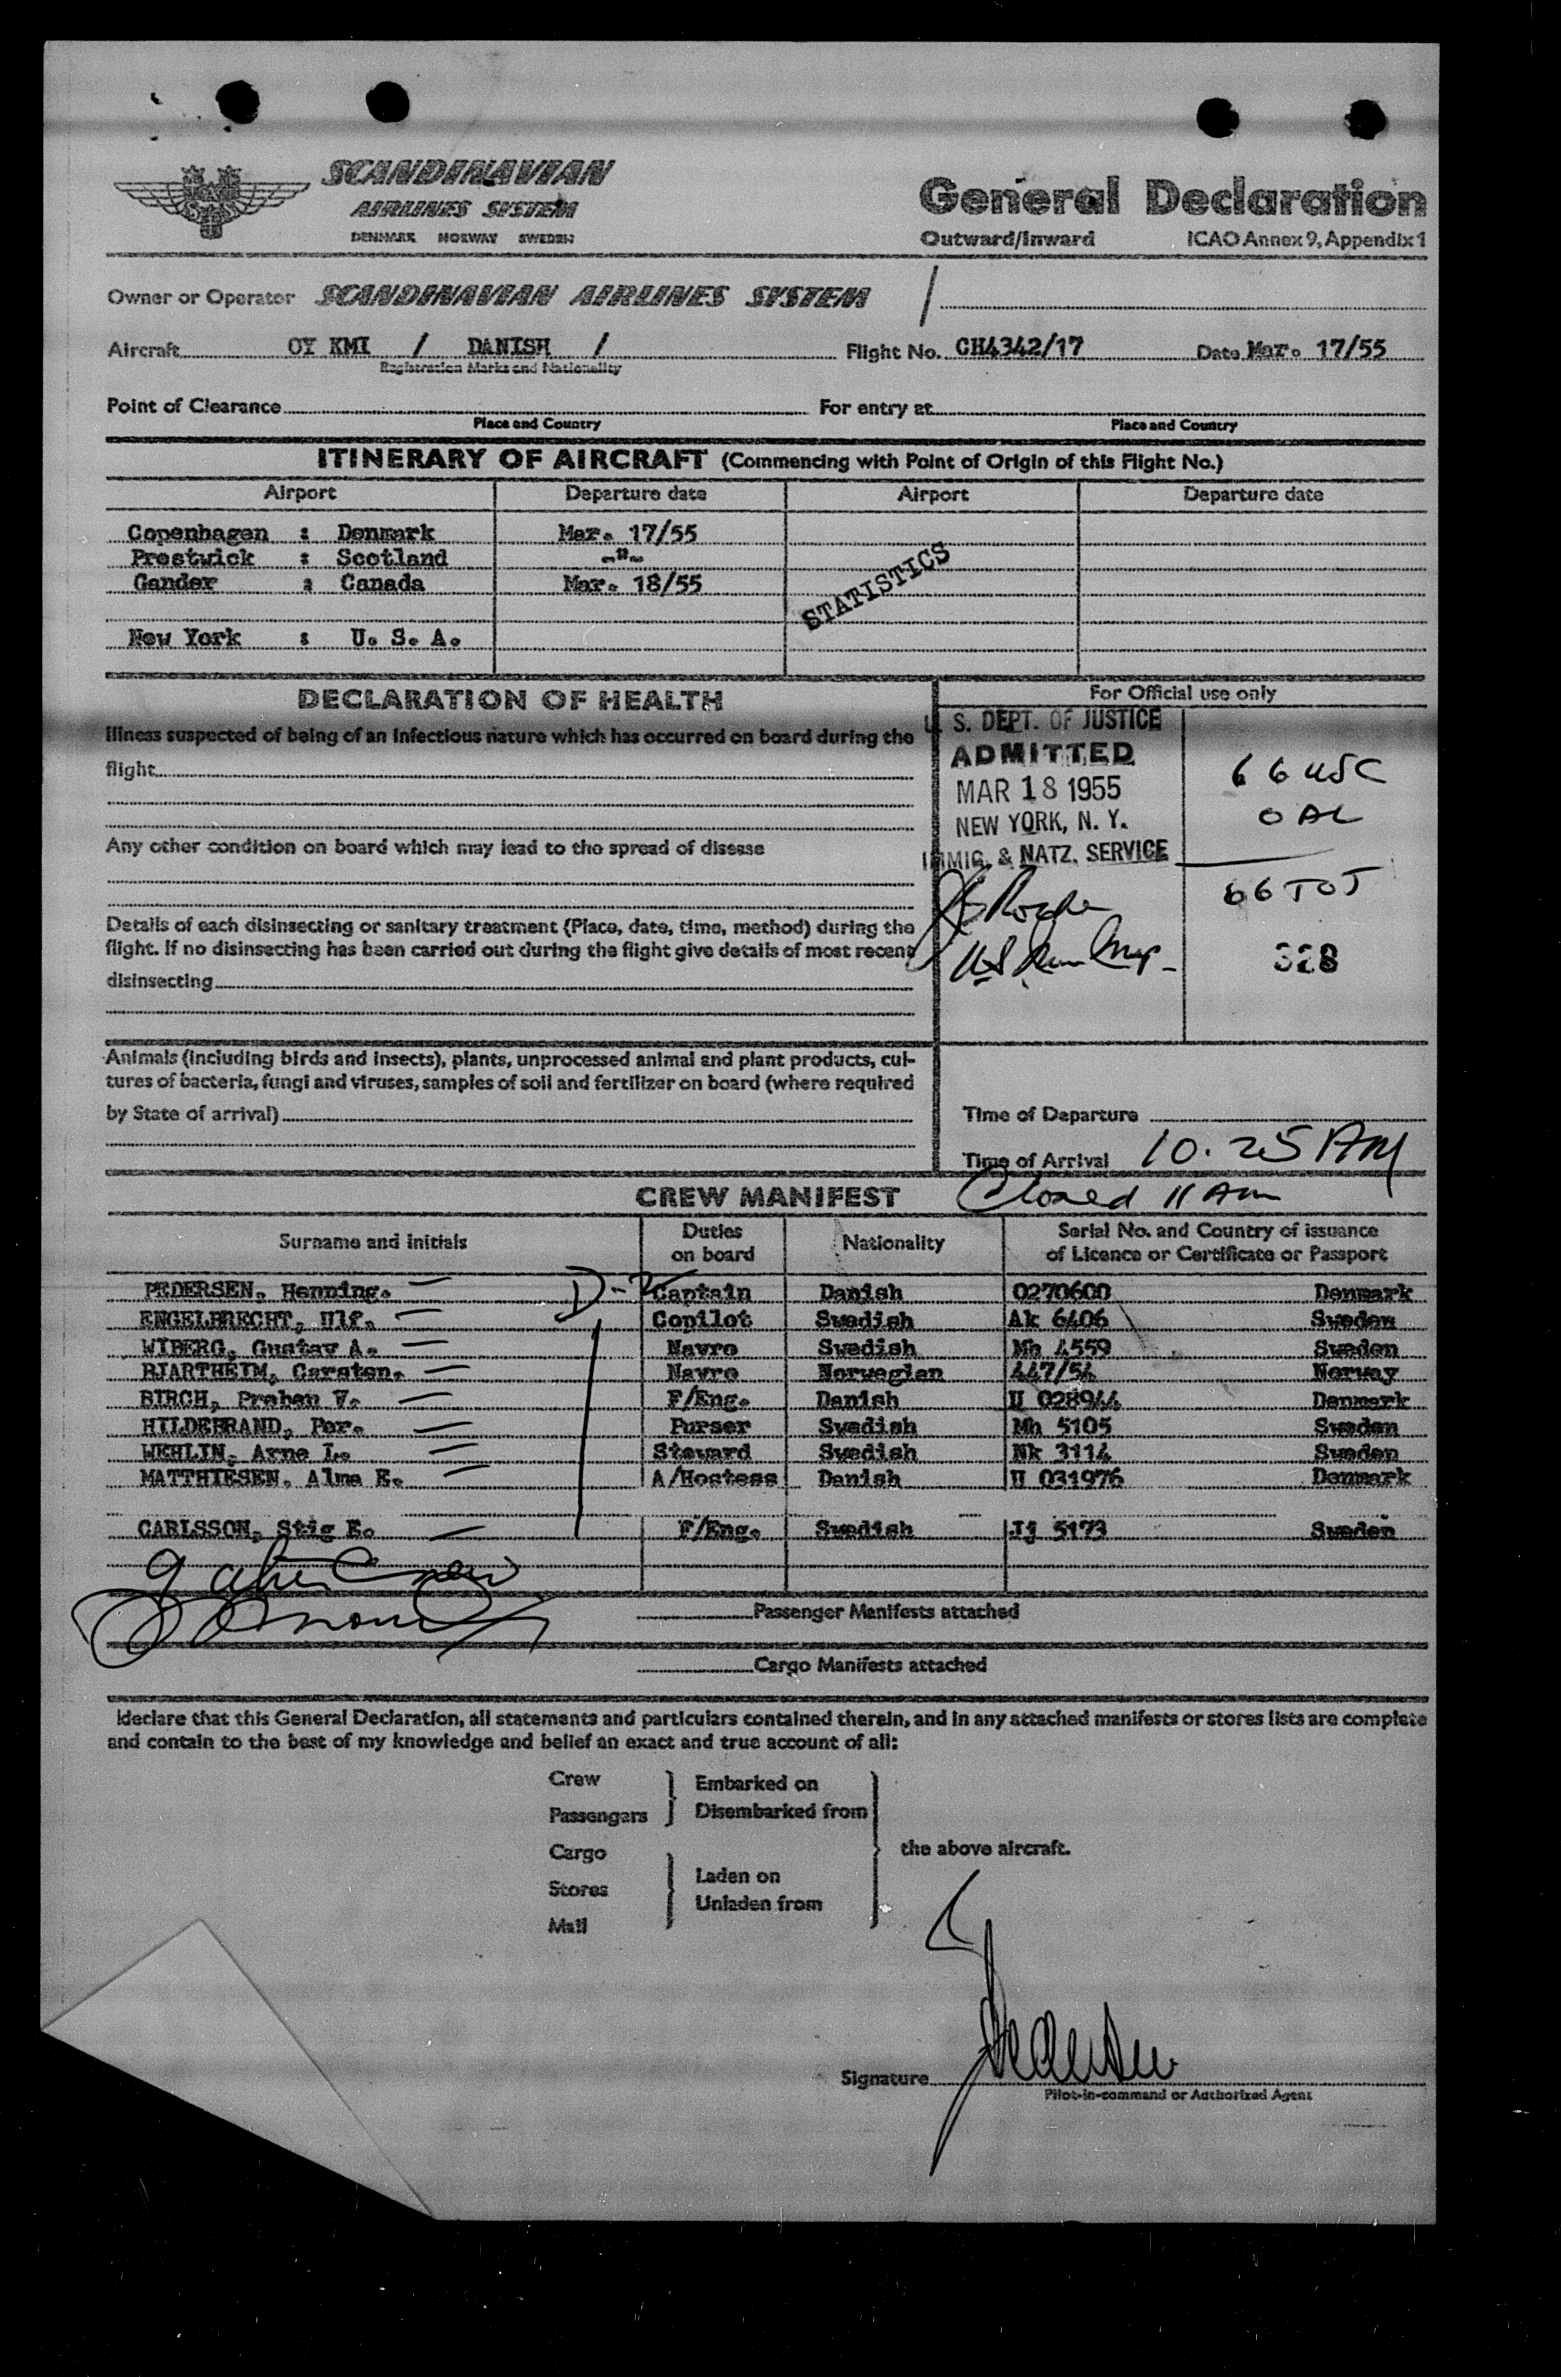 SCANDINAVIAN
AIRLINES SYSTEM
DENMARK NORWAY SWEDEN
General Declaration
Outward/Inward ICAO Annex 9, Appendix 1
Owner or Operator SCANDINAVIAN AIRLINES SYSTEM /
Aircraft OY KMI / DANISH / Flight No. CH4342/17 Date Mar. 17/55
Registration Marks and Nationality
Point of Clearance For entry at
Place and Country Place and Country
ITINERARY OF AIRCRAFT (Commencing with Point of Origin of this Flight No.)
Airport Departure date Airport Departure date
Copenhagen : Denmark Mar. 17/55
Prestwick : Scotland -"-
Gander : Canada Mar. 18/55
STATISTICS
New York : U. S. A.
DECLARATION OF HEALTH
Illness suspected of being of an infectious nature which has occurred on board during the
flight
Any other condition on board which may lead to the spread of disease
Details of each disinsecting or sanitary treatment (Place, date, time, method) during the
flight. If no disinsecting has been carried out during the flight give details of most recent
disinsecting
Animals (including birds and insects), plants, unprocessed animal and plant products, cul-
tures of bacteria, fungi and viruses, samples of soil and fertilizer on board (where required
by State of arrival)
For Official use only
U. S. DEPT. OF JUSTICE
ADMITTED
MAR 18 1955
NEW YORK, N. Y.
IMMIG. & NATZ. SERVICE
66 USC
0 AL
66 TOT
328
Time of Departure
Time of Arrival 10.25 AM
Closed 11 AM
CREW MANIFEST
Surname and initials Duties on board Nationality Serial No. and Country of issuance of Licence or Certificate or Passport
PEDERSEN, Henning. D-2 Captain Danish 0270600 Denmark
ENGELBRECHT, Ulf. Copilot Swedish Ak 6406 Sweden
WIBERG, Gustav A. Navro Swedish Mh 4559 Sweden
BJARTHEIM, Carsten. Navro Norwegian 447/54 Norway
BIRCH, Preben V. F/Eng. Danish U 028944 Denmark
HILDEBRAND, Per. Purser Swedish Mh 5105 Sweden
WEHLIN, Arne L. Steward Swedish Nk 3114 Sweden
MATTHIESEN, Alma E. A/Hostess Danish U 031976 Denmark
CARLSSON, Stig E. F/Eng. Swedish Ij 5173 Sweden
9 alien Crew
Passenger Manifests attached
Cargo Manifests attached
I declare that this General Declaration, all statements and particulars contained therein, and in any attached manifests or stores lists are complete
and contain to the best of my knowledge and belief an exact and true account of all:
Crew
Passengers
Embarked on
Disembarked from
Cargo
Stores
Mail
Laden on
Unladen from
the above aircraft.
Signature Pedersen
Pilot-in-command or Authorized Agent